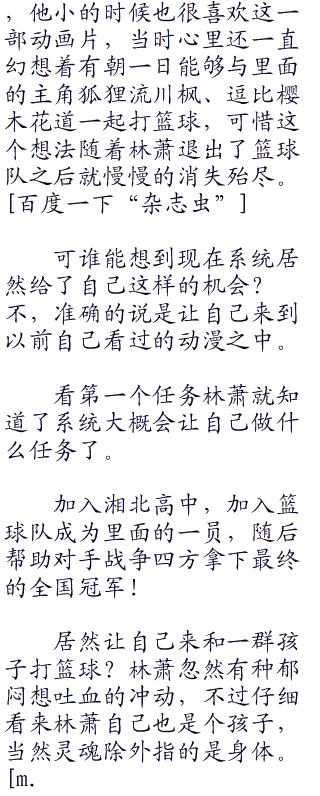 ，他小的时候也很喜欢这一
部动画片，当时心里还一直
幻想着有朝一日能够与里面
的主角狐狸流川枫、逗比樱
木花道一起打篮球，可惜这
个想法随着林萧退出了篮球
队之后就慢慢的消失殆尽。
[百度一下“杂志虫”]
可谁能想到现在系统居
然给了自己这样的机会？
不，准确的说是让自己来到
以前自己看过的动漫之中。
看第一个任务林萧就知
道了系统大概会让自己做什
么任务了。
加入湘北高中，加入篮
球队成为里面的一员，随后
帮助对手战争四方拿下最终
的全国冠军！
居然让自己来和一群孩
子打篮球？林萧忽然有种郁
闷想吐血的冲动，不过仔细
看来林萧自己也是个孩子，
当然灵魂除外指的是身体。
[m.